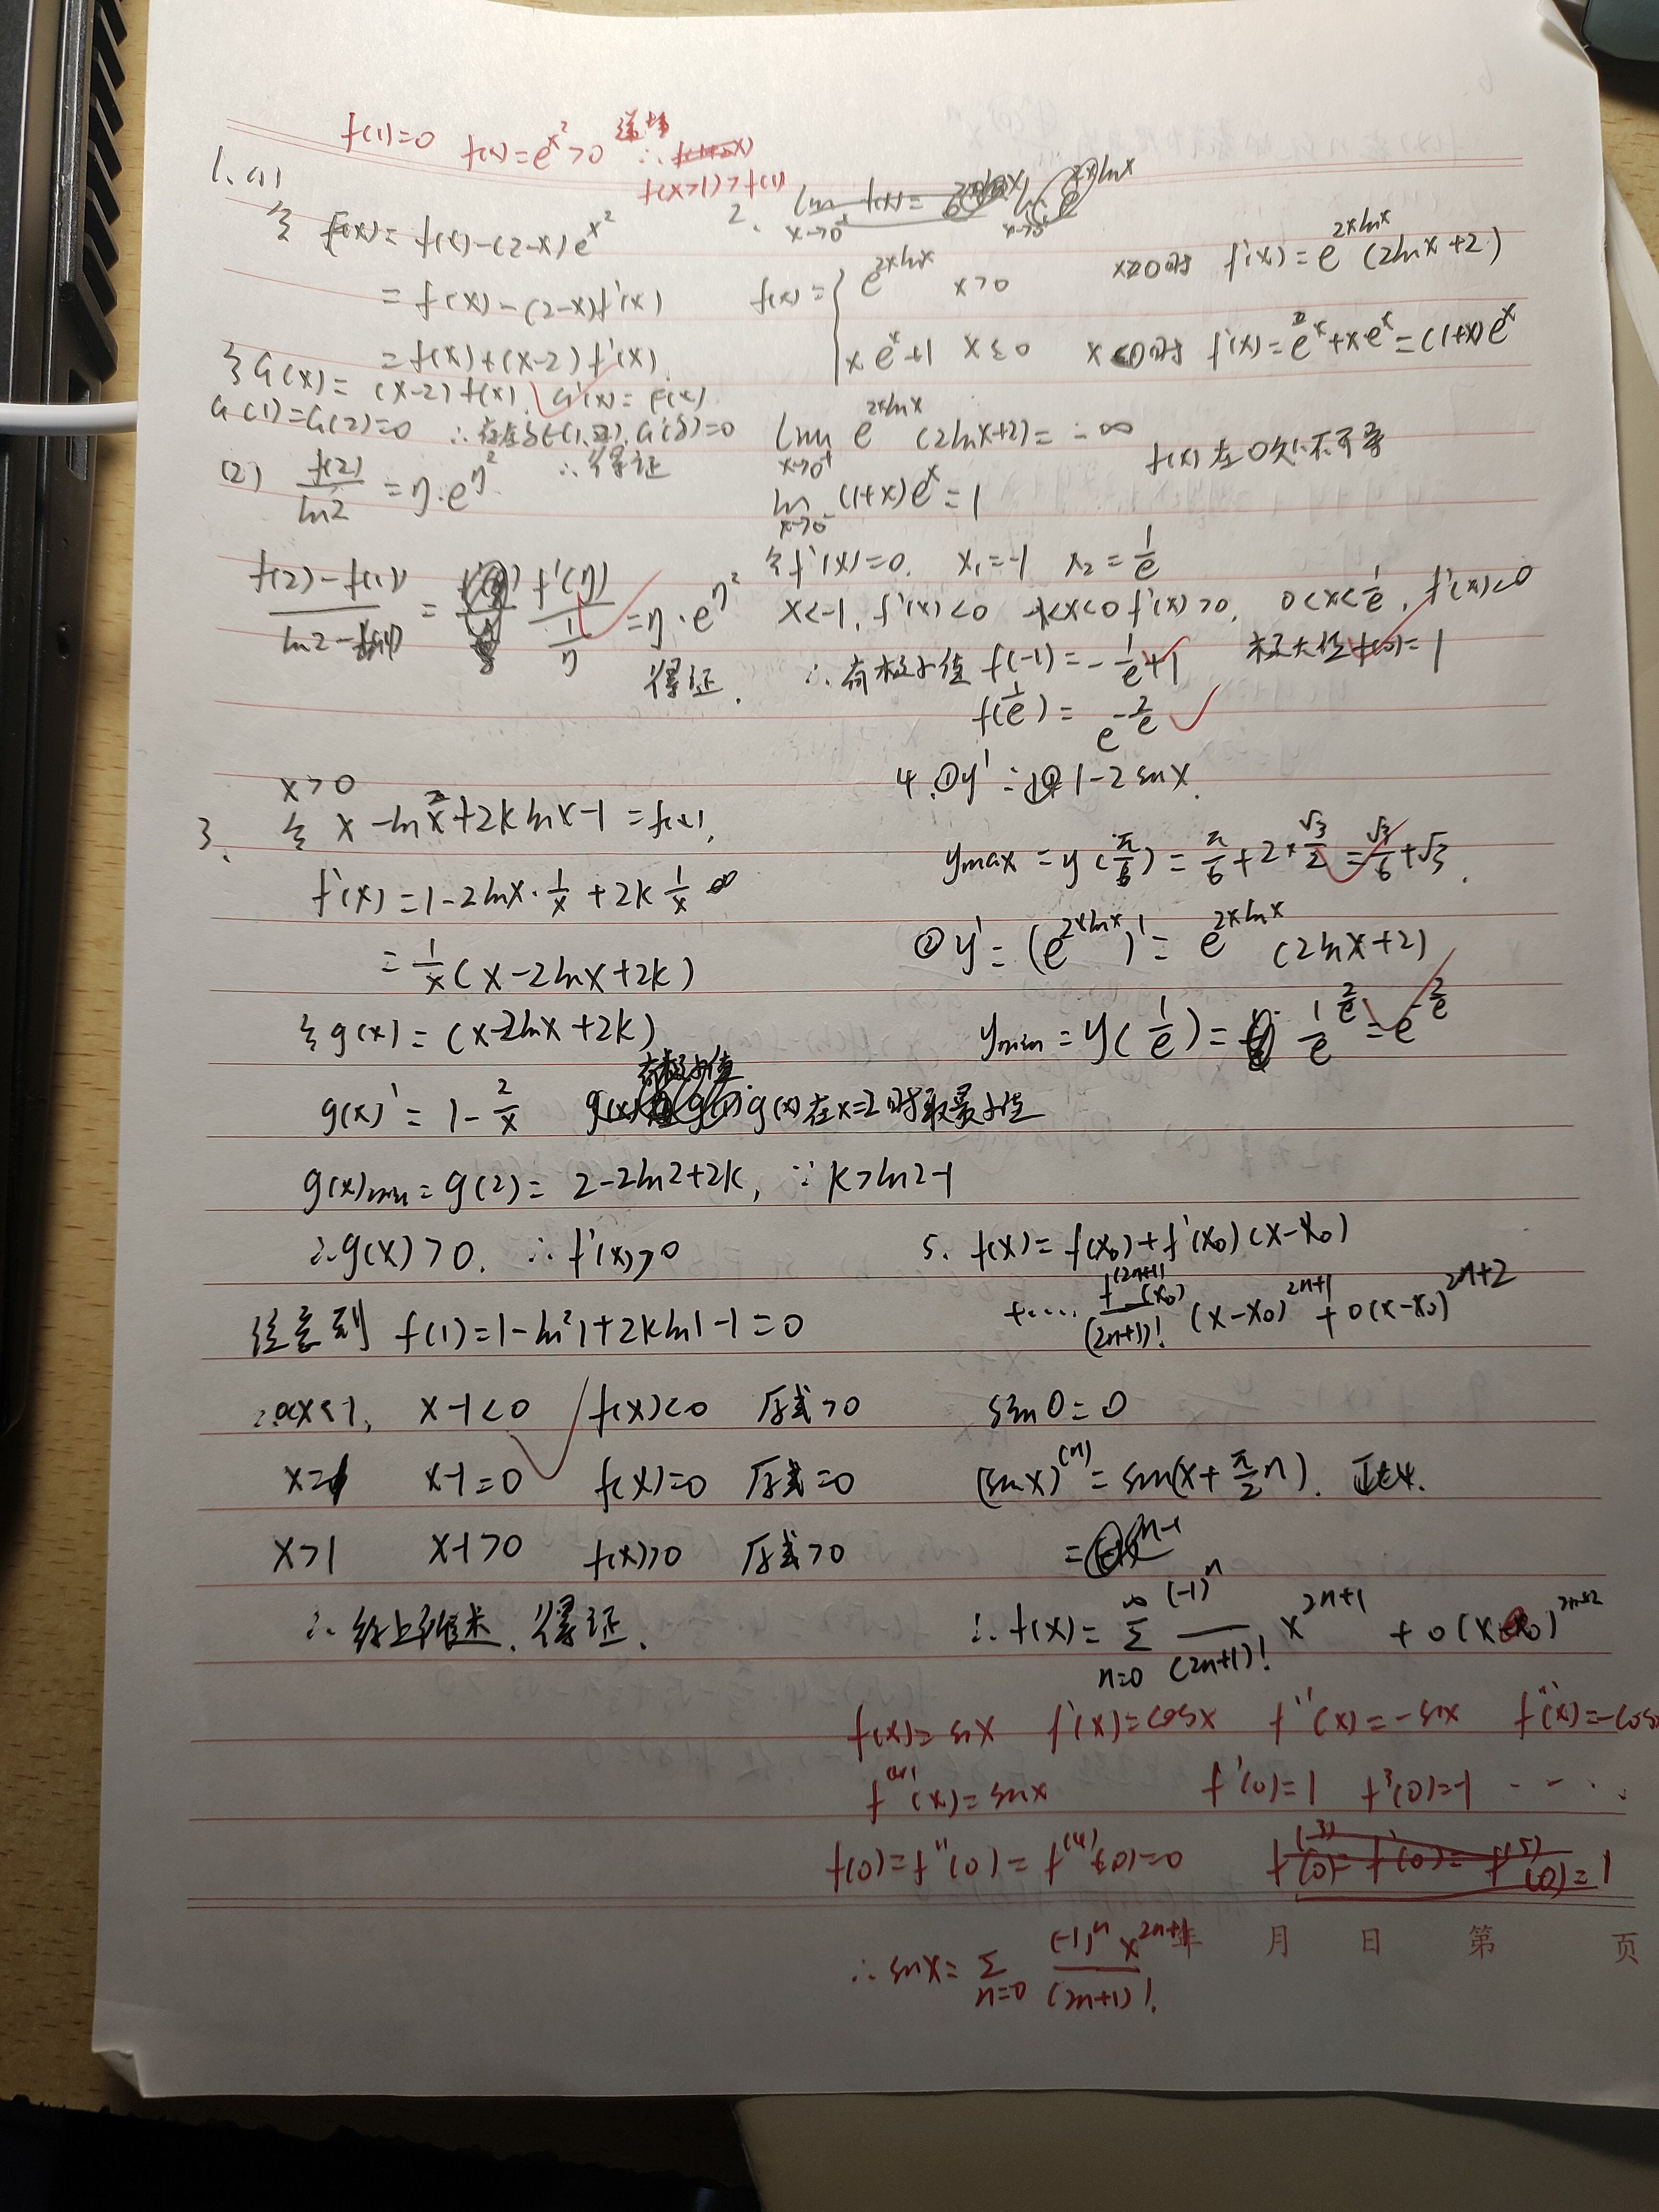 f(1)=0 f'(x)=e^{x^2}>0 递增 ∴
f(x>1)>f(1)
1. (1)
令 F(x)=f(x)-(2-x)e^{x^2}
=f(x)-(2-x)f'(x)
=f(x)+(x-2)f'(x).
令G(x)=(x-2)f(x). G'(x)=F(x).
G(1)=G(2)=0 ∴存在δ∈(1,2), G'(δ)=0
∴得证
(2) \frac{f(2)}{ln2}=η·e^{η^2}
\frac{f(2)-f(1)}{ln2-ln1}=\frac{f'(η)}{\frac{1}{η}}=η·e^{η^2}
得证.
2.
f(x)={ e^{2xlnx} x>0
xe^x+1 x≤0
x>0时 f'(x)=e^{2xlnx}(2lnx+2)
x<0时 f'(x)=e^x+x·e^x=(1+x)e^x
lim_{x→0^+} e^{2xlnx}(2lnx+2)=-∞
f(x)在0处不可导
lim_{x→0^-}(1+x)e^x=1
令f'(x)=0. x_1=-1 x_2=\frac{1}{e}
x<-1, f'(x)<0 -1<x<0 f'(x)>0, 0<x<\frac{1}{e}, f'(x)<0
∴有极小值 f(-1)=-\frac{1}{e}+1 极大值f(0)=1
f(\frac{1}{e})=e^{-\frac{2}{e}}
x>0
3. 令 x-ln^2x+2klnx-1=f(x),
f'(x)=1-2lnx·\frac{1}{x}+2k\frac{1}{x}
=\frac{1}{x}(x-2lnx+2k)
令g(x)=(x-2lnx+2k)
g(x)'=1-\frac{2}{x} g(x)在x=2时取最小值
g(x)min=g(2)=2-2ln2+2k, ∵k>ln2-1
∴g(x)>0. ∴f'(x)>0
注意到 f(1)=1-ln^21+2kln1-1=0
∴0<x<1, x-1<0 f(x)<0 原式>0
x=1 x-1=0 f(x)=0 原式=0
x>1 x-1>0 f(x)>0 原式>0
∴综上所述, 得证.
4.①y'=1-2sinx.
ymax=y(\frac{π}{6})=\frac{π}{6}+2×\frac{√3}{2}=\frac{√3}{6}+√3.
②y'=(e^{2xlnx})'=e^{2xlnx}(2lnx+2)
ymin=y(\frac{1}{e})=\frac{1}{e}^{\frac{2}{e}}=e^{-\frac{2}{e}}
5. f(x)=f(x_0)+f'(x_0)(x-x_0)
+....\frac{f^{(2n+1)}(x_0)}{(2n+1)!}(x-x_0)^{2n+1}+o(x-x_0)^{2n+2}
sin0=0
(sinx)^{(n)}=sin(x+\frac{π}{2}n).
∴f(x)=\sum_{n=0}^{∞}\frac{(-1)^n}{(2n+1)!}x^{2n+1}+o(x-x_0)^{2n+2}
f(x)=sinx f'(x)=cosx f''(x)=-sinx f'''(x)=-cosx
f^{(4)}(x)=sinx f'(0)=1 f^3(0)=-1 ....
f(0)=f''(0)=f^{(4)}(0)=0 f^{(3)}(0)=f'(0)=f^{(5)}(0)=1
年 月 日 第 页
∴sinx=\sum_{n=0}\frac{(-1)^nx^{2n+1}}{(2n+1)!}.